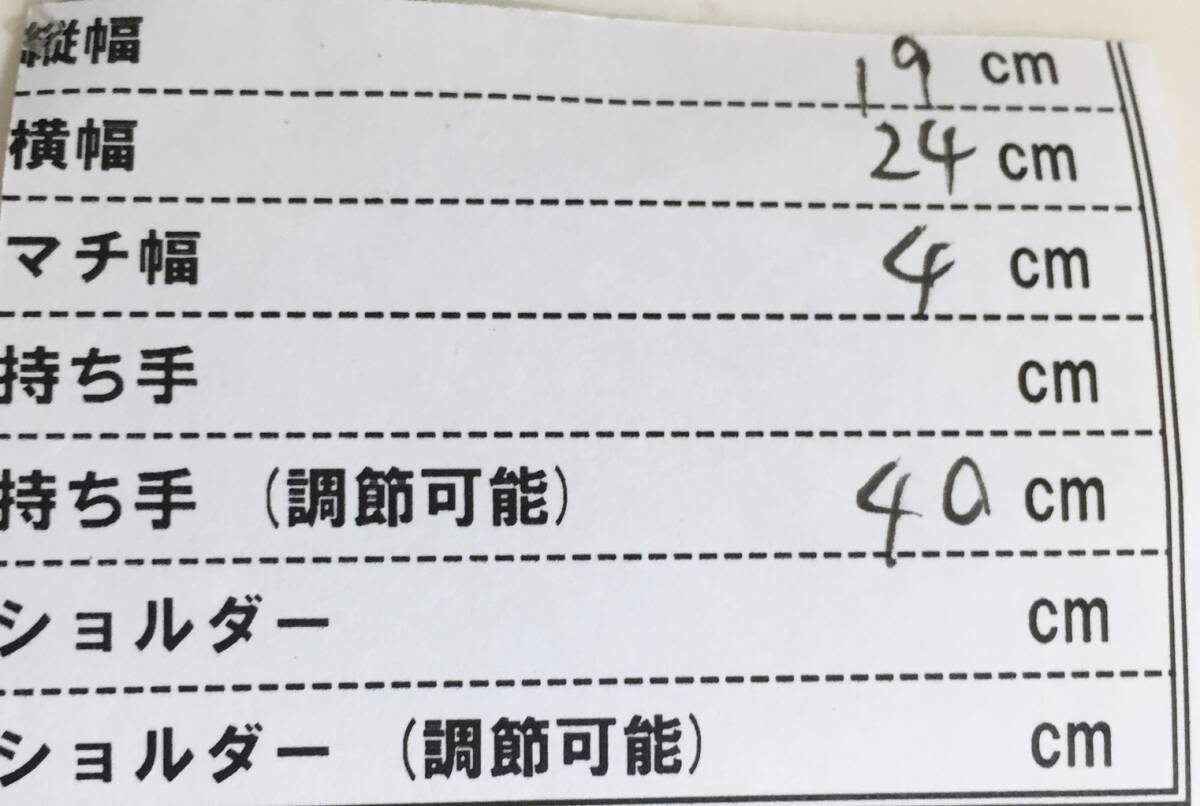 縦幅 19 cm
横幅 24 cm
マチ幅 4 cm
持ち手 cm
持ち手 (調節可能) 40 cm
ショルダー cm
ショルダー (調節可能) cm